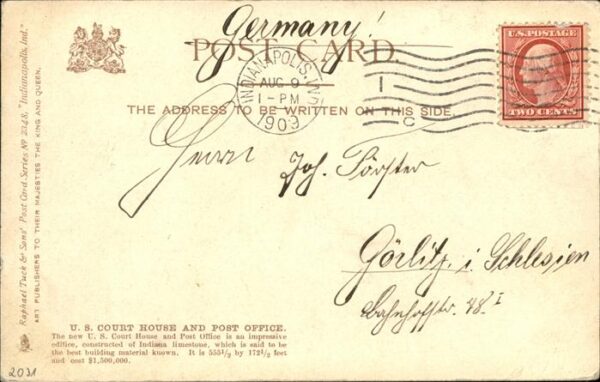 Germany!
POST CARD.
INDIANAPOLIS, IND.
AUG 9
1-PM
1909
1
C
U.S. POSTAGE
TWO CENTS
THE ADDRESS TO BE WRITTEN ON THIS SIDE.
Herrn Joh. Förster
Görlitz i. Schlesien
Bahnhofstr. 48 I
U. S. COURT HOUSE AND POST OFFICE.
The new U. S. Court House and Post Office is an impressive
edifice, constructed of Indiana limestone, which is said to be
the best building material known. It is 355½ by 172½ feet
and cost $1,500,000.
2031
Raphael Tuck & Sons' Post Card Series Nº 2348, "Indianapolis, Ind."
ART PUBLISHERS TO THEIR MAJESTIES THE KING AND QUEEN.